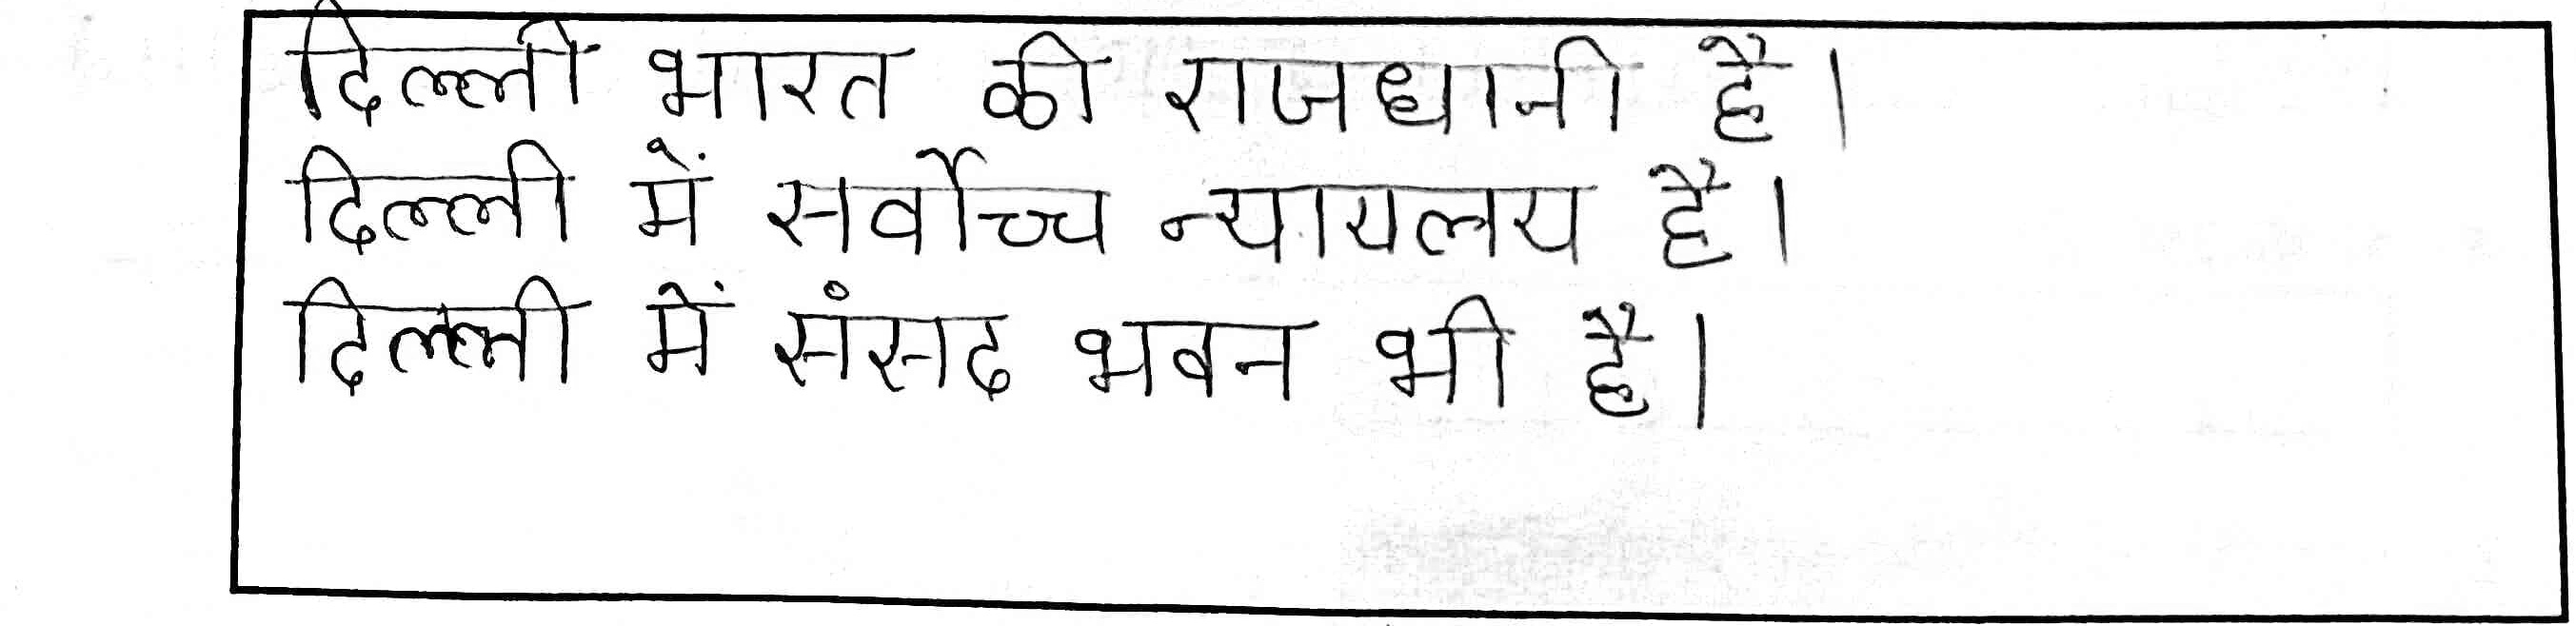 दिल्ली भारत की राजधानी है।
दिल्ली में सर्वोच्च न्यायलय है।
दिल्ली में संसद भवन भी है।